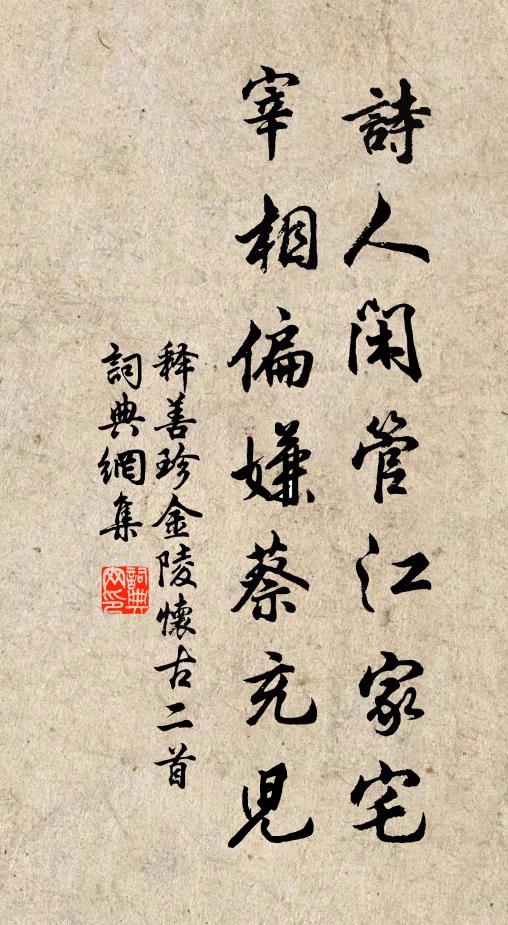 詩人閑管江家宅
宰相偏嫌蔡充児
释善珍金陵懷古二首
詞典網集
詞典网印